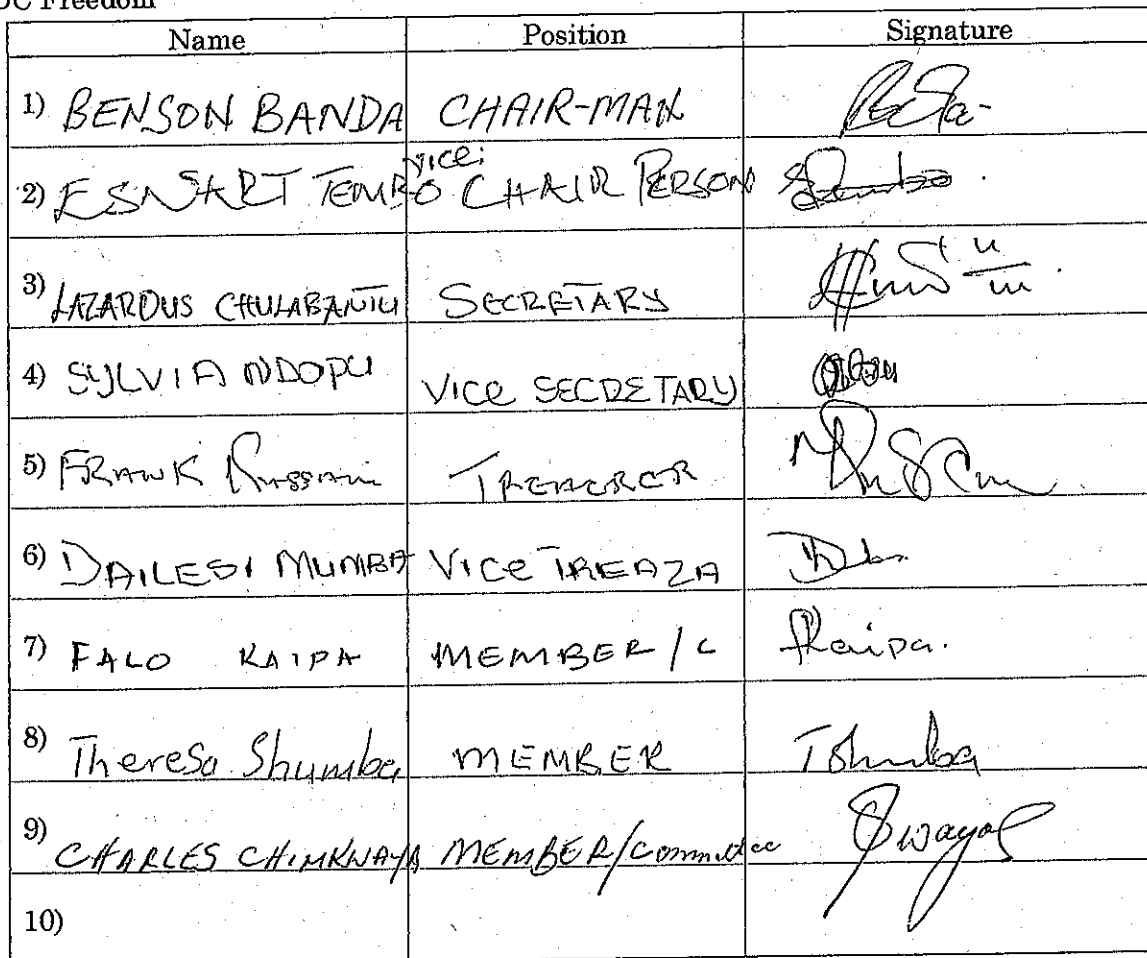 DC Freedom
Name Position Signature
1) BENSON BANDA CHAIR-MAN
2) ESNART TEMBO vice: CHAIR PERSON
3) LAZAROUS CHULABANTU SECRETARY
4) SYLVIA NDOPU VICE SECRETARY
5) FRANK
6) DAILESI MUMBA VICE TREAZA
7) FALO KAIPA MEMBER/C Kaipa.
8) Theresa Shumba MEMBER TShumba
9) CHARLES CHIMKWAYA MEMBER/committee
10)